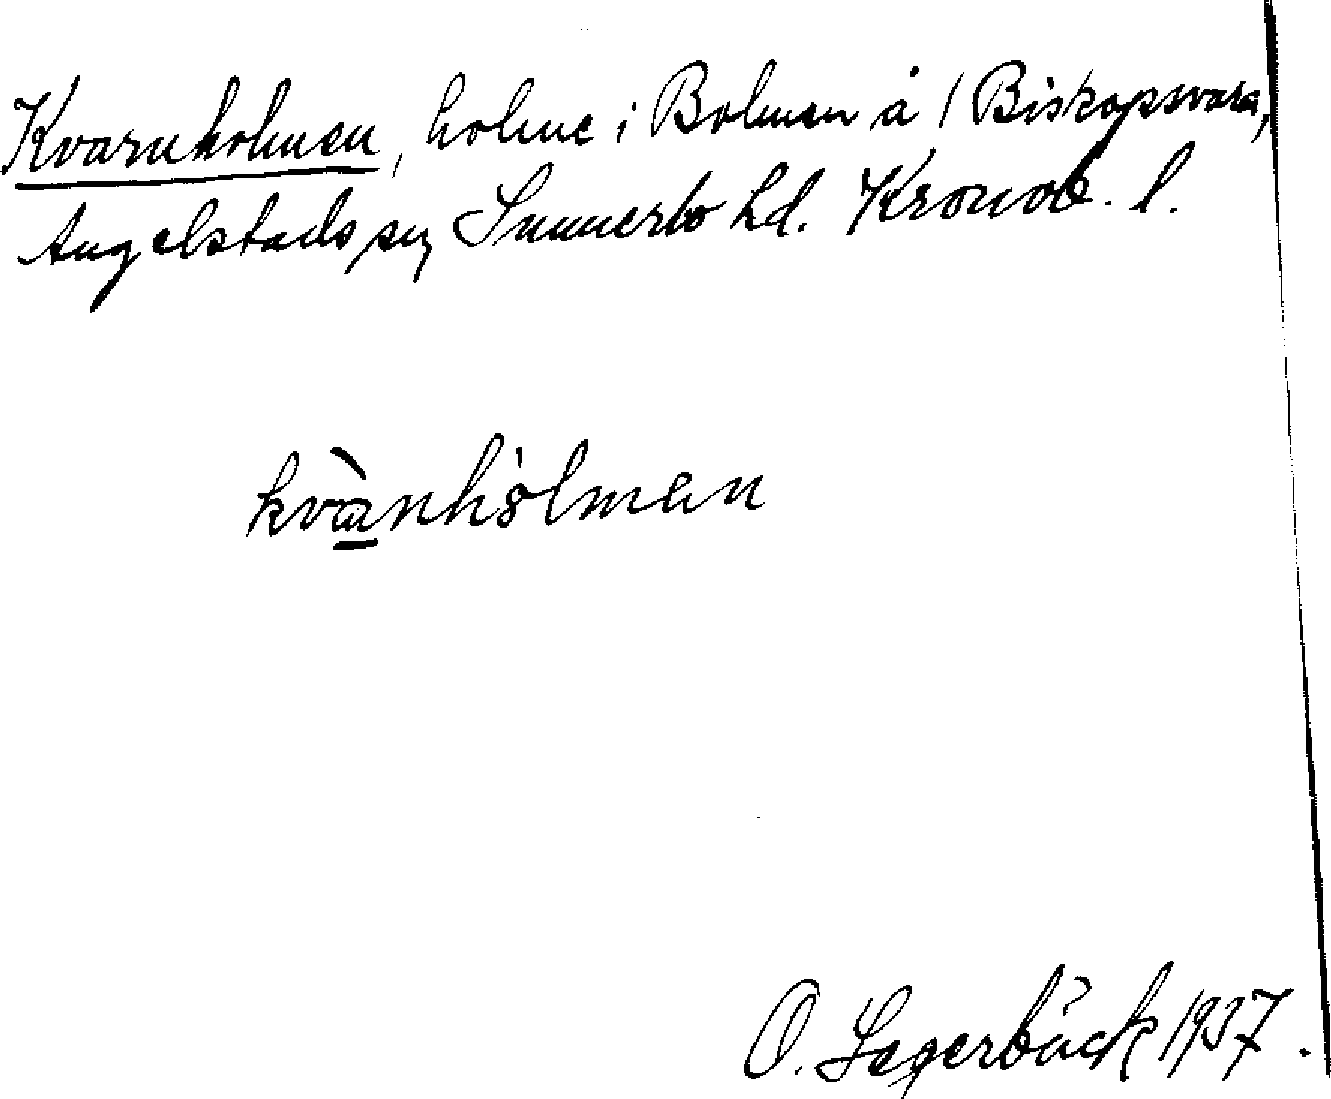 Kvarnholmen, holme i Bolmen å / Biskopsvara,
Angelstads sn, Sunnerbo hd. Kronob. l.
kvànhòlmen
O. Lagerbäck 1937.